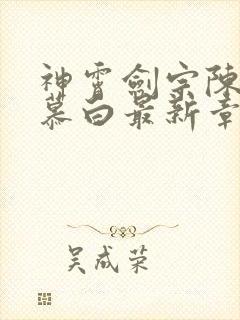 神霄剑宗陈
慕白最新章
吴成荣